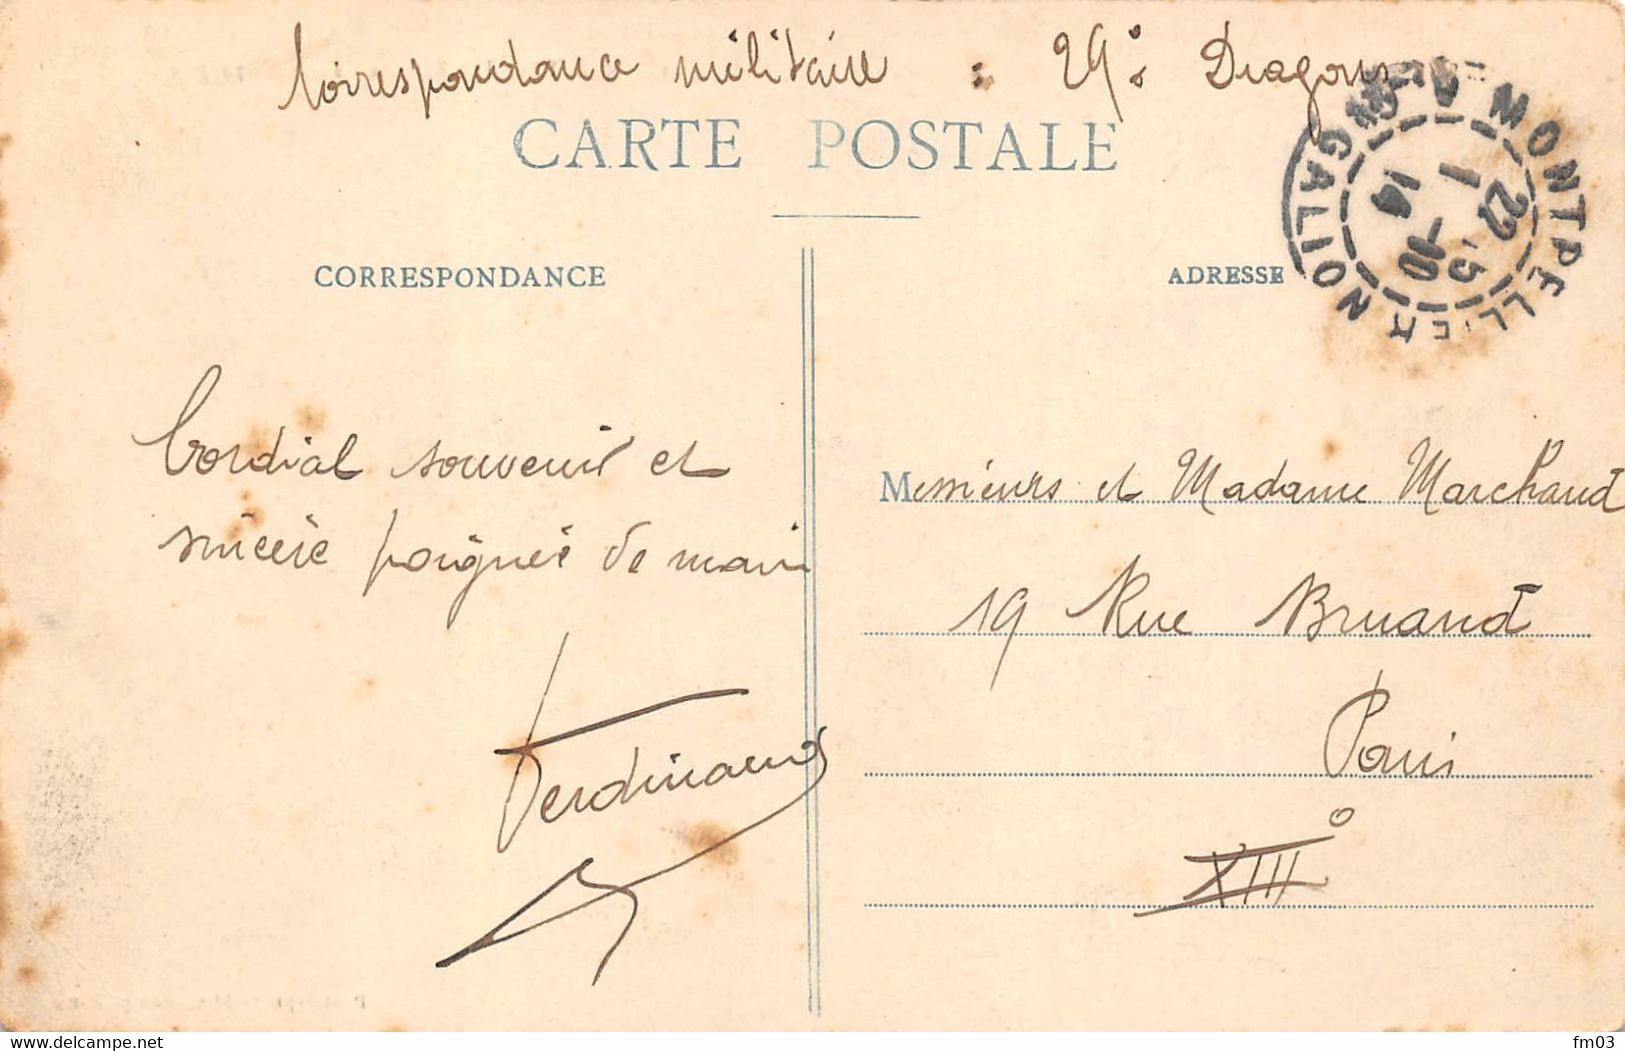 Correspondance militaire : 29e Dragons
CARTE POSTALE
CORRESPONDANCE
ADRESSE
MONTPELLIER
AVIGNON
22 -5
14
Cordial souvenir et
sincère poignée de main
Ferdinand
Messieurs et Madame Marchand
19 Rue Bruant
Paris
XIII°
delcampe.net
fm03